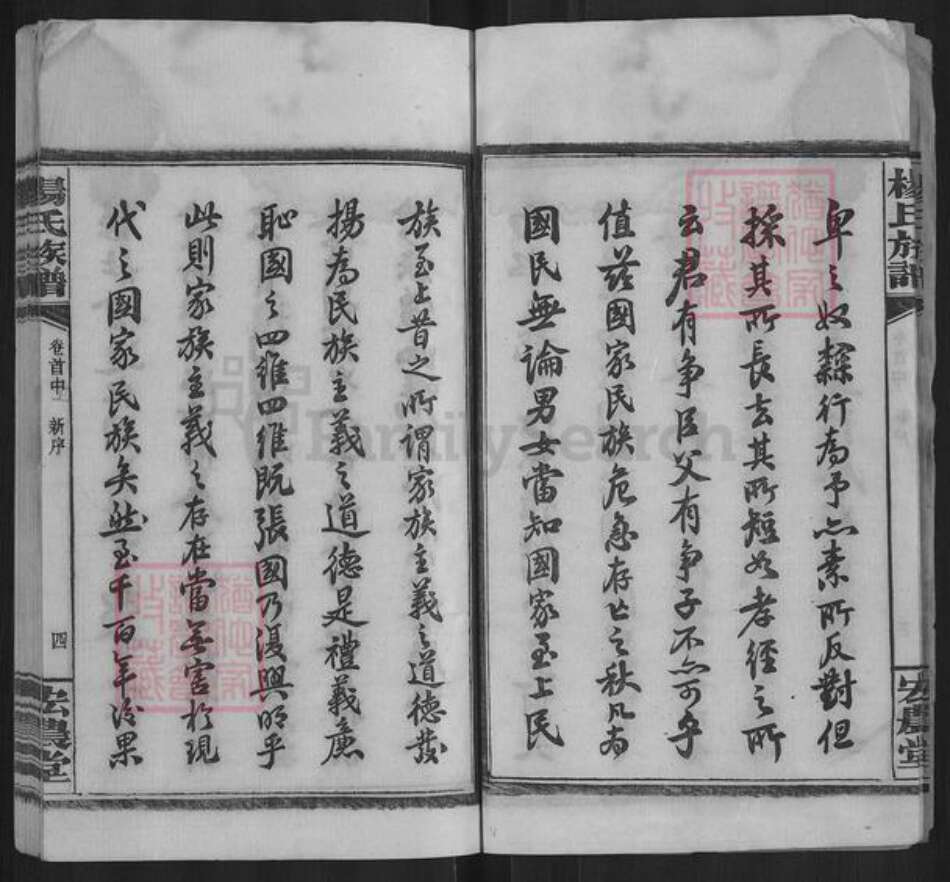 楊氏族譜
卑之奴隸行為予亦素所反對但
採其所長去其所短如孝經之所
云君有爭臣父有爭子不亦可乎
值茲國家民族危急存亡之秋凡為
國民無論男女當知國家至上民
宏農堂
族至上昔之所謂家族主義之道德發
揚為民族主義之道德是禮義廉
恥國之四維四維既張國乃復興明乎
此則家族主義之存在當無害於現
代之國家民族矣然至千百年後果
楊氏族譜
卷首中 新序
四
宏農堂
FamilySearch